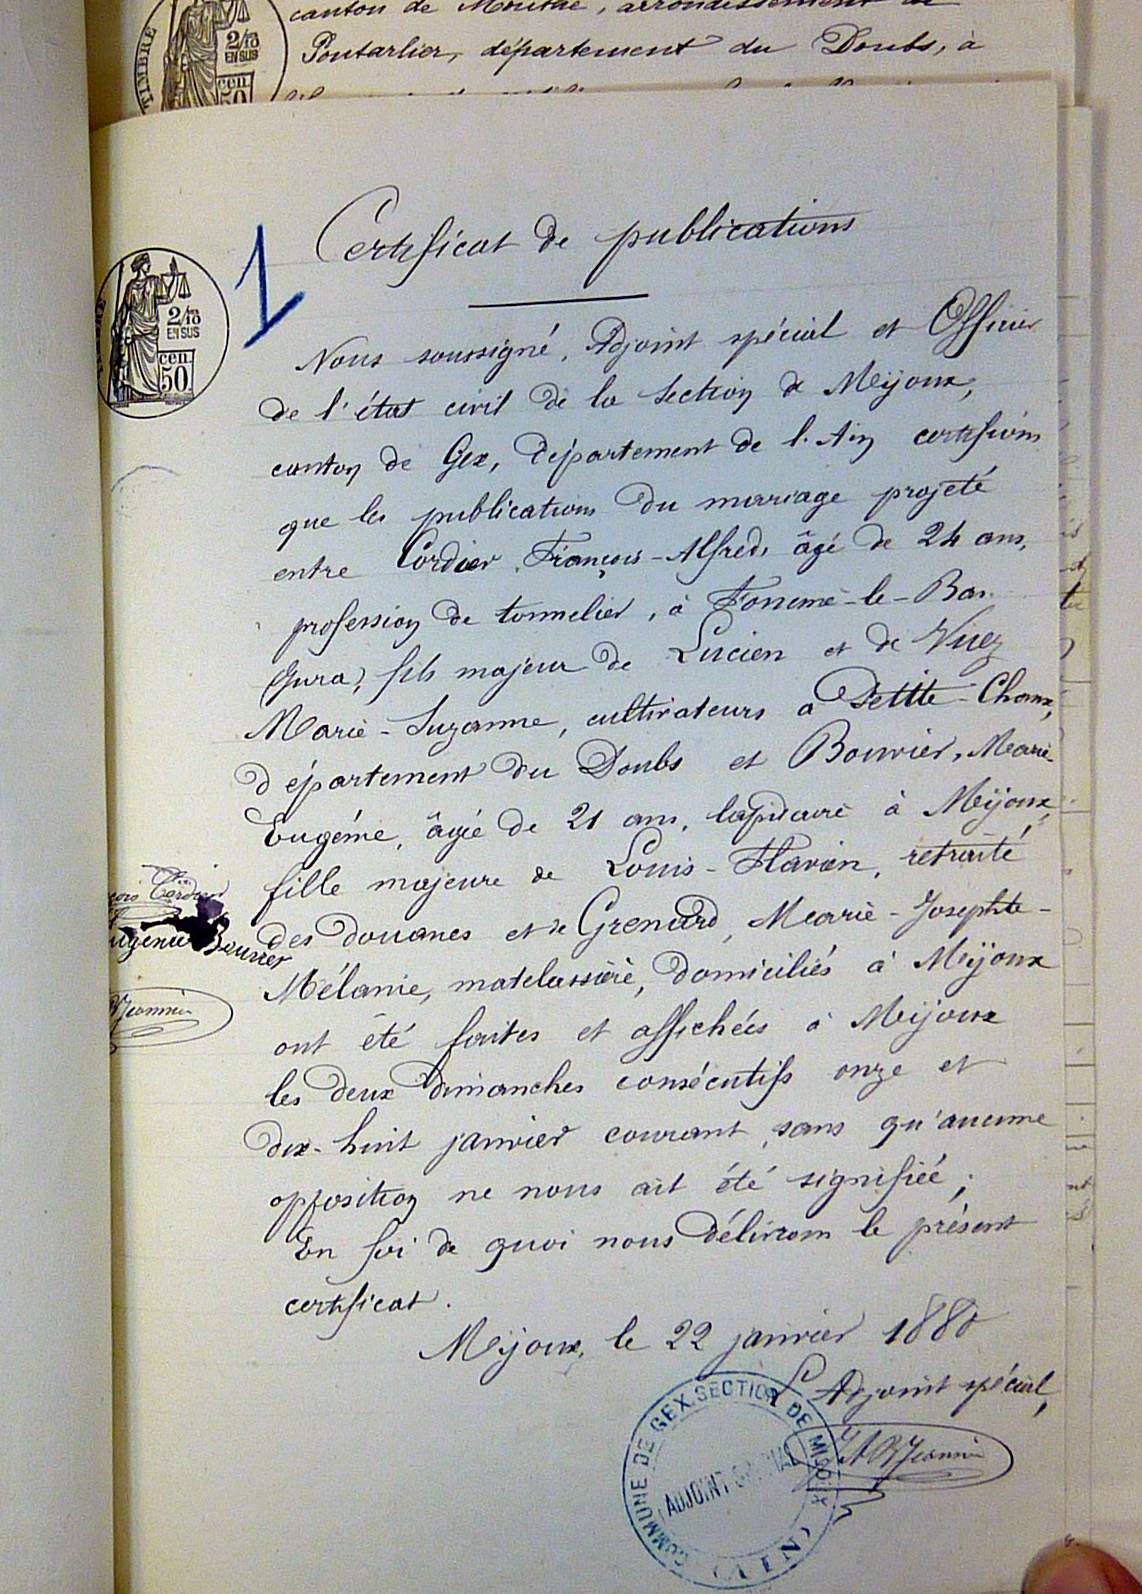 canton de Mouthe, arrondissement de
Pontarlier, département du Doubs, à
TIMBRE
2/10
EN SUS
cen
50
1
Certificat de publications
2/10
EN SUS
cen
50
Nous soussigné, Adjoint spécial et Officier
de l'état civil de la Section de Mijoux,
canton de Gex, département de l'Ain certifions
que les publications du mariage projeté
entre Cordier François-Alfred, âgé de 24 ans,
profession de tonnelier, à Foncine-le-Bas
(Jura), fils majeur de Lucien et de Vuez
Marie-Suzanne, cultivateurs à Petite-Chaux,
département du Doubs et Bouvier, Marie-
Eugénie, âgée de 21 ans, lapidaire à Mijoux,
fille majeure de Louis-Flavien, retraité
des douanes et de Grenard, Marie-Josephte-
Mélanie, matelassière, domiciliés à Mijoux
ont été faites et affichées à Mijoux
les deux dimanches consécutifs onze et
dix-huit janvier courant, sans qu'aucune
opposition ne nous ait été signifiée;
En foi de quoi nous délivrons le présent
certificat.
Mijoux, le 22 janvier 1880
L'Adjoint spécial,
Cordier
Eugénie Bouvier
Jeannin
Jeannin
COMMUNE DE GEX. SECTION DE MIJOUX
ADJOINT SPÉCIAL
(AIN)